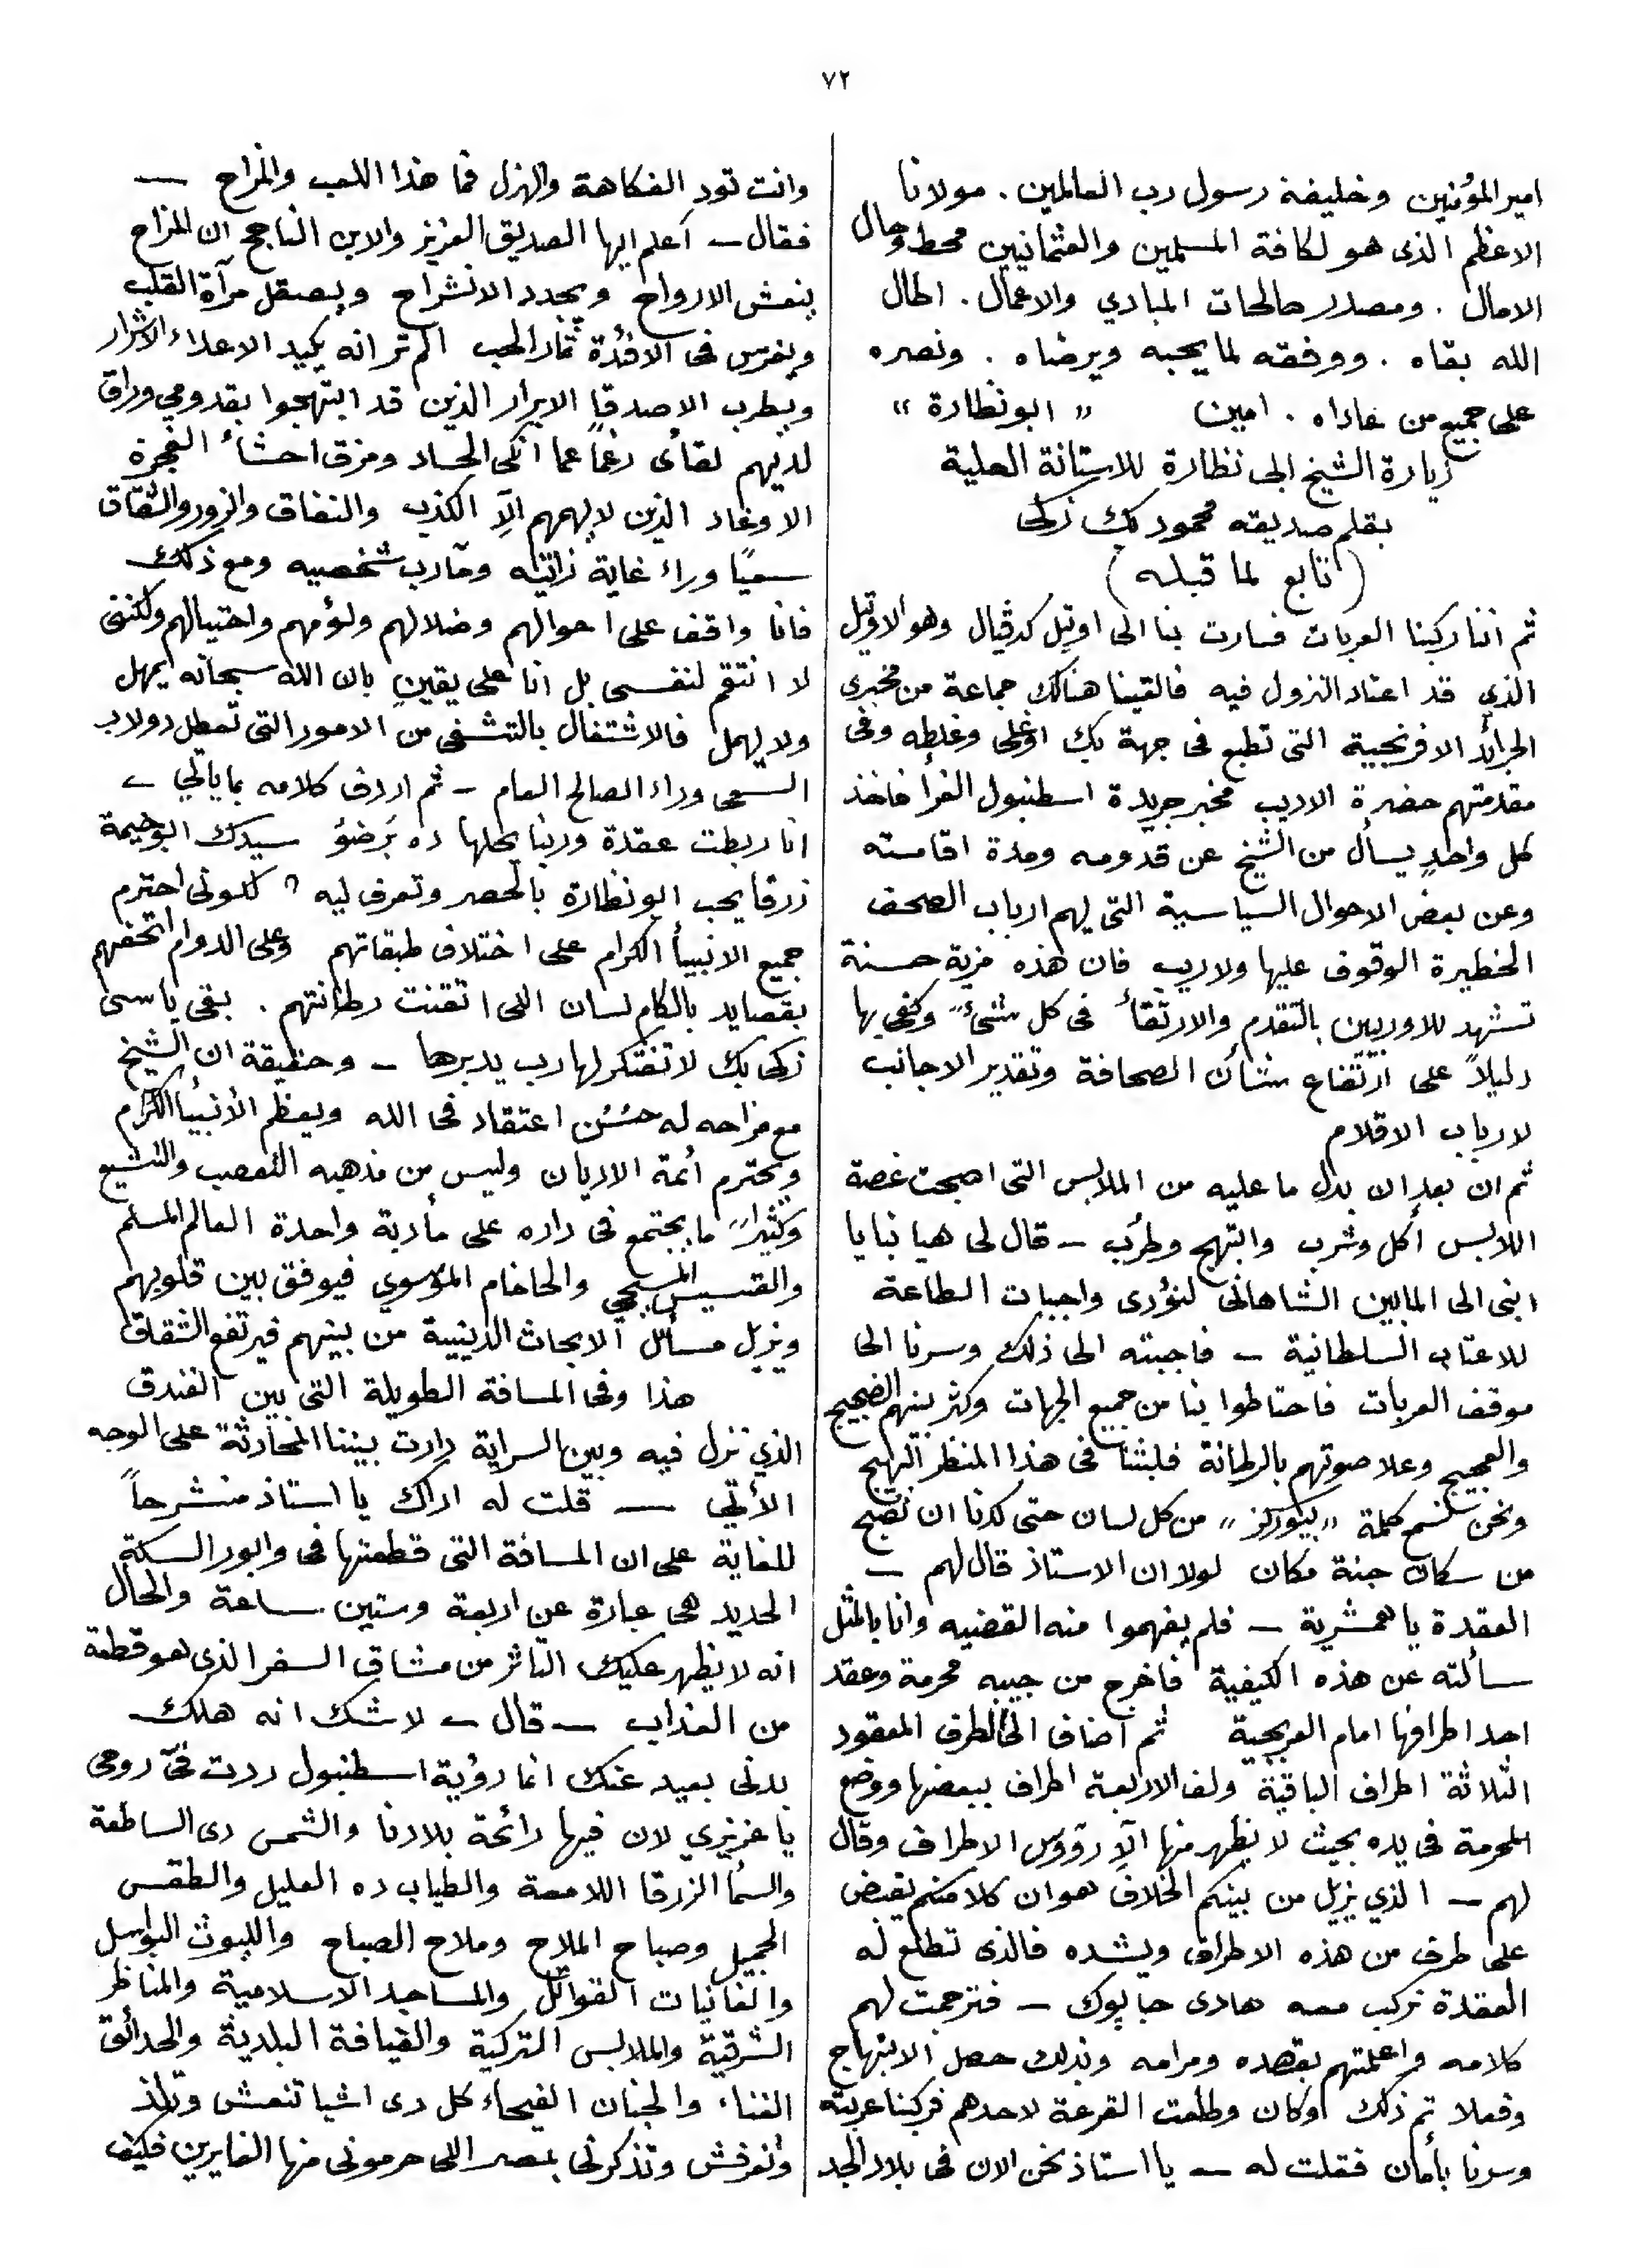 ٧٢
امير المؤمنين وخليفة رسول رب العالمين . مولانا
الاعظم الذى هو لكافة المسلمين والعثمانيين محط رحال
الامال . ومصدر صالحات المبادي والاعمال . اطال
الله بقاه . ووفقه لما يحبه ويرضاه . ونصره
على جميع من عاداه . امين « ابونظارة »
زيارة الشيخ ابى نظارة للاستانة العلية
بقلم صديقه محمود بك زكى
( تابع لما قبله )
ثم اننا ركبنا العربات فسارت بنا الى اوتيل كدڤيال وهو الاوتيل
الذي قد اعتاد النزول فيه فالقينا هنالك جماعة من مخبرى
الجرائد الافرنجية التى تطبع فى جهة بك اوغلى وغلطه وفى
مقدمتهم حضرة الاديب مخبر جريدة اسطنبول الغرأ فاخذ
كل واحدٍ يسأل من الشيخ عن قدومه ومدة اقامته
وعن بعض الاحوال السياسية التى يهم ارباب الصحف
الخطيرة الوقوف عليها ولا ريب فان هذه مزية حسنة
تشهد للاوربيين بالتقدم والارتقأ فى كل شىءٍ وكفى بها
دليلاً على ارتفاع شأن الصحافة وتقدير الاجانب
لارباب الاقلام
ثم ان بعد ان بدل ما عليه من الملابس التى اصبحت غصة
اللابس أكل وشرب وابتهج وطرب ــ قال لى هيا بنا يا
ابنى الى المابين الشاهانى لنؤدى واجبات الطاعة
للاعتاب السلطانية ــ فاجبته الى ذلك وسرنا الى
موقف العربات فاحتاطوا بنا من جميع الجهات وكثر بينهم الضجيج
والعجيج وعلا صوتهم بالرطانة فلبثنا فى هذا المنظر البهيج
ونحن نسمع كلمة « بيوركز » من كل لسان حتى كدنا ان نصبح
من سكان جنة مكان لولا ان الاستاذ قال لهم ــ
العقدة يا همشرية ــ فلم يفهموا منه القضيه وانا بالمثل
سألته عن هذه الكيفية فاخرج من جيبه محرمة وعقد
احد اطرافها امام العربجية ثم اضاف الى الطرف المعقود
الثلاثة اطراف الباقية ولف الاربعة اطراف ببعضها ووضع
المحرمة فى يده بحيث لا يظهر منها الّا رؤوس الاطراف وقال
لهم ــ الذي يزيل من بينكم الخلاف هو ان كلا منكم يقبض
على طرف من هذه الاطراف ويشده فالذى تطلع له
العقدة نركب معه هادى جابوك ــ فترجمت لهم
كلامه واعلمتهم بقصده ومرامه وبذلك حصل الابتهاج
وفعلا تم ذلك اوكان وطلعت القرعة لاحدهم فركبنا عربته
وسرنا بأمان فقلت له ــ يا استاذ نحن الان فى بلاد الجد
وانت تود الفكاهة والهزل فما هذا اللعب والمزاح ــ
فقال ــ اعلم ايها الصديق العزيز والابن الناجح ان المزاح
ينعش الارواح ويجدد الانشراح ويصقل مرآة القلب
ويغرس فى الافئدة ثمار الحب الم تر انه يكيد الاعداء الاشرار
ويطرب الاصدقا الابرار الذين قد ابتهجوا بقدومي وراق
لديهم لقأى رغماً عما انكى الحساد ومزق احشاءُ الفجرة
الاوغاد الذين لا يهمهم الّا الكذب والنفاق والزور والشقاق
سعيًا وراء غاية ذاتيه ومآرب شخصيه ومع ذلك
فانا واقف على احوالهم وضلالهم ولؤمهم واحتيالهم ولكننى
لا انتقم لنفسى بل انا على يقين بان الله سبحانه يمهل
ولا يهمل فالاشتغال بالتشفى من الامور التى تعطل دولاب
السعى وراء الصالح العام ــ ثم اردف كلامه بما يأتي ــ
انا ربطت عقدة وربنا يحلها ده بَرضُو سيدك ابو خيمة
زرقا يحب ابو نظارة بالحصر وتعرف ليه ؟ لكونى احترم
جميع الانبيأ الكرام على اختلاف طبقاتهم وعلى الدوام اتحفهم
بقصايد بالكام لسان اللى اتقنت رطانتهم . بقى ياسى
زكى بك لا تفتكر لها رب يدبرها ــ وحقيقة ان الشيخ
مع مزاحه له حسُن اعتقاد فى الله ويعظم الأنبيأ الكرام
ويحترم أئمة الاديان وليس من مذهبه التعصب والتشيع
وكثيراً ما يجتمع فى داره على مأدبة واحدة العالم المسلم
والقسيس المسيحي والحاخام الموسوي فيوفق بين قلوبهم
ويزيل مسائل الابحاث الدينية من بينهم فيرتفع الشقاق
هذا وفى المسافة الطويلة التى بين الفندق
الذي نزل فيه وبين السراية دارت بيننا المحادثة على الوجه
الأتي ــ قلت له اراك يا استاذ منشرحاً
للغاية على ان المسافة التى قطعتها فى وابور السكة
الحديد هى عبارة عن اربعة وستين ساعة والحال
انه لا يظهر عليك التاثر من مشاق السفر الذى هو قطعة
من العذاب ــ قال ــ لا شك انه هلك
بدنى بعيد عنك انما رؤية اسطنبول ردت فىّ روحى
يا عزيزي لان فيها رائحة بلادنا والشمس دى الساطعة
والسمأ الزرقا اللامعة والطياب ده العليل والطقس
الجميل وصباح الملاح وملاح الصباح والليوث البواسل
والغانيات القواتل والمساجد الاسلامية والمناظر
الشرقية والملابس التركية والقيافة البلدية والحدائق
الغناء والجنان الفيحاء كل دى اشيا تنعش وتلذذ
وتفرفش وتذكرنى بمصر اللى حرمونى منها الغايرين فكيف